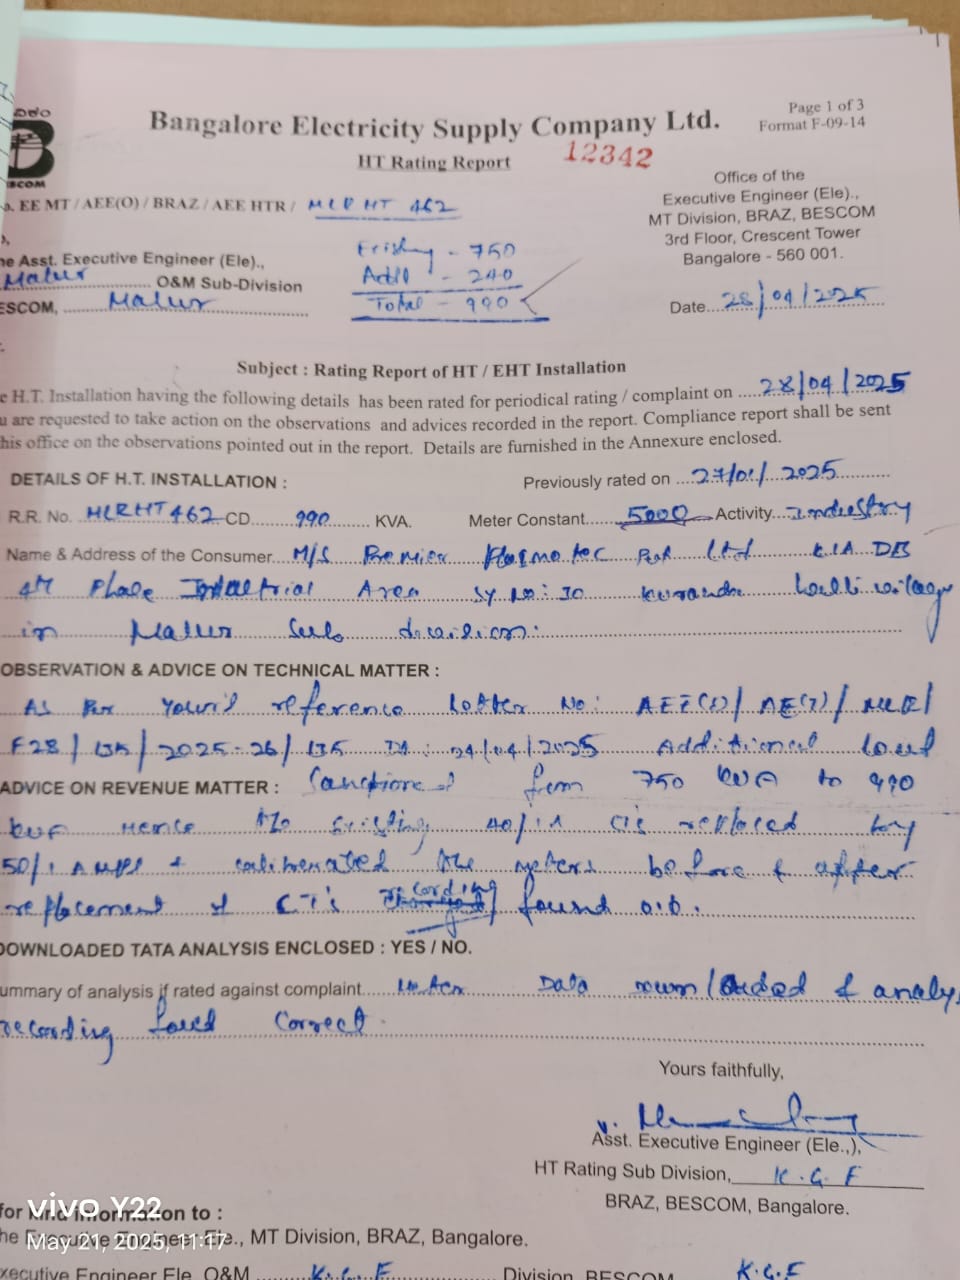 Page 1 of 3
Bangalore Electricity Supply Company Ltd.
Format F-09-14
HT Rating Report
12342
BESCOM
EE MT / AEE(O) / BRAZ / AEE HTR / MLR HT 462
Office of the
Executive Engineer (Ele).,
MT Division, BRAZ, BESCOM
3rd Floor, Crescent Tower
Bangalore - 560 001.
750
Addl - 240
Total - 990
he Asst. Executive Engineer (Ele).,
Malur O&M Sub-Division
ESCOM, Malur
Date 28/04/2025
Subject : Rating Report of HT / EHT Installation
e H.T. Installation having the following details has been rated for periodical rating / complaint on 28/04/2025
u are requested to take action on the observations and advices recorded in the report. Compliance report shall be sent
his office on the observations pointed out in the report. Details are furnished in the Annexure enclosed.
DETAILS OF H.T. INSTALLATION :
Previously rated on 27/01/2025
R.R. No. MLRHT 462 CD 990 KVA. Meter Constant 5000 Activity Industry
Name & Address of the Consumer M/S Premier Ltd KIADB
4th Phase Industrial Area Sy No: village
in Malur Sub division.
OBSERVATION & ADVICE ON TECHNICAL MATTER :
As Per reference Letter No: /
F28/ / 2025-26/ 24/04/2025 Additional load
ADVICE ON REVENUE MATTER : Sanctioned from 750 KVA to 990
Hence the Existing 40/1A replaced by
50/1 Amps & the meters before & after
replacement of CT's recording found O.K.
DOWNLOADED TATA ANALYSIS ENCLOSED : YES / NO.
ummary of analysis if rated against complaint Meter Data &
recording found Correct.
Yours faithfully,
Asst. Executive Engineer (Ele.,),
HT Rating Sub Division, K.G.F
BRAZ, BESCOM, Bangalore.
for kind information to :
he Executive Engineer Ele., MT Division, BRAZ, Bangalore.
xecutive Engineer Ele, O&M K.G.F Division, BESCOM K.G.F
vivo Y22
May 21, 2025, 11:17